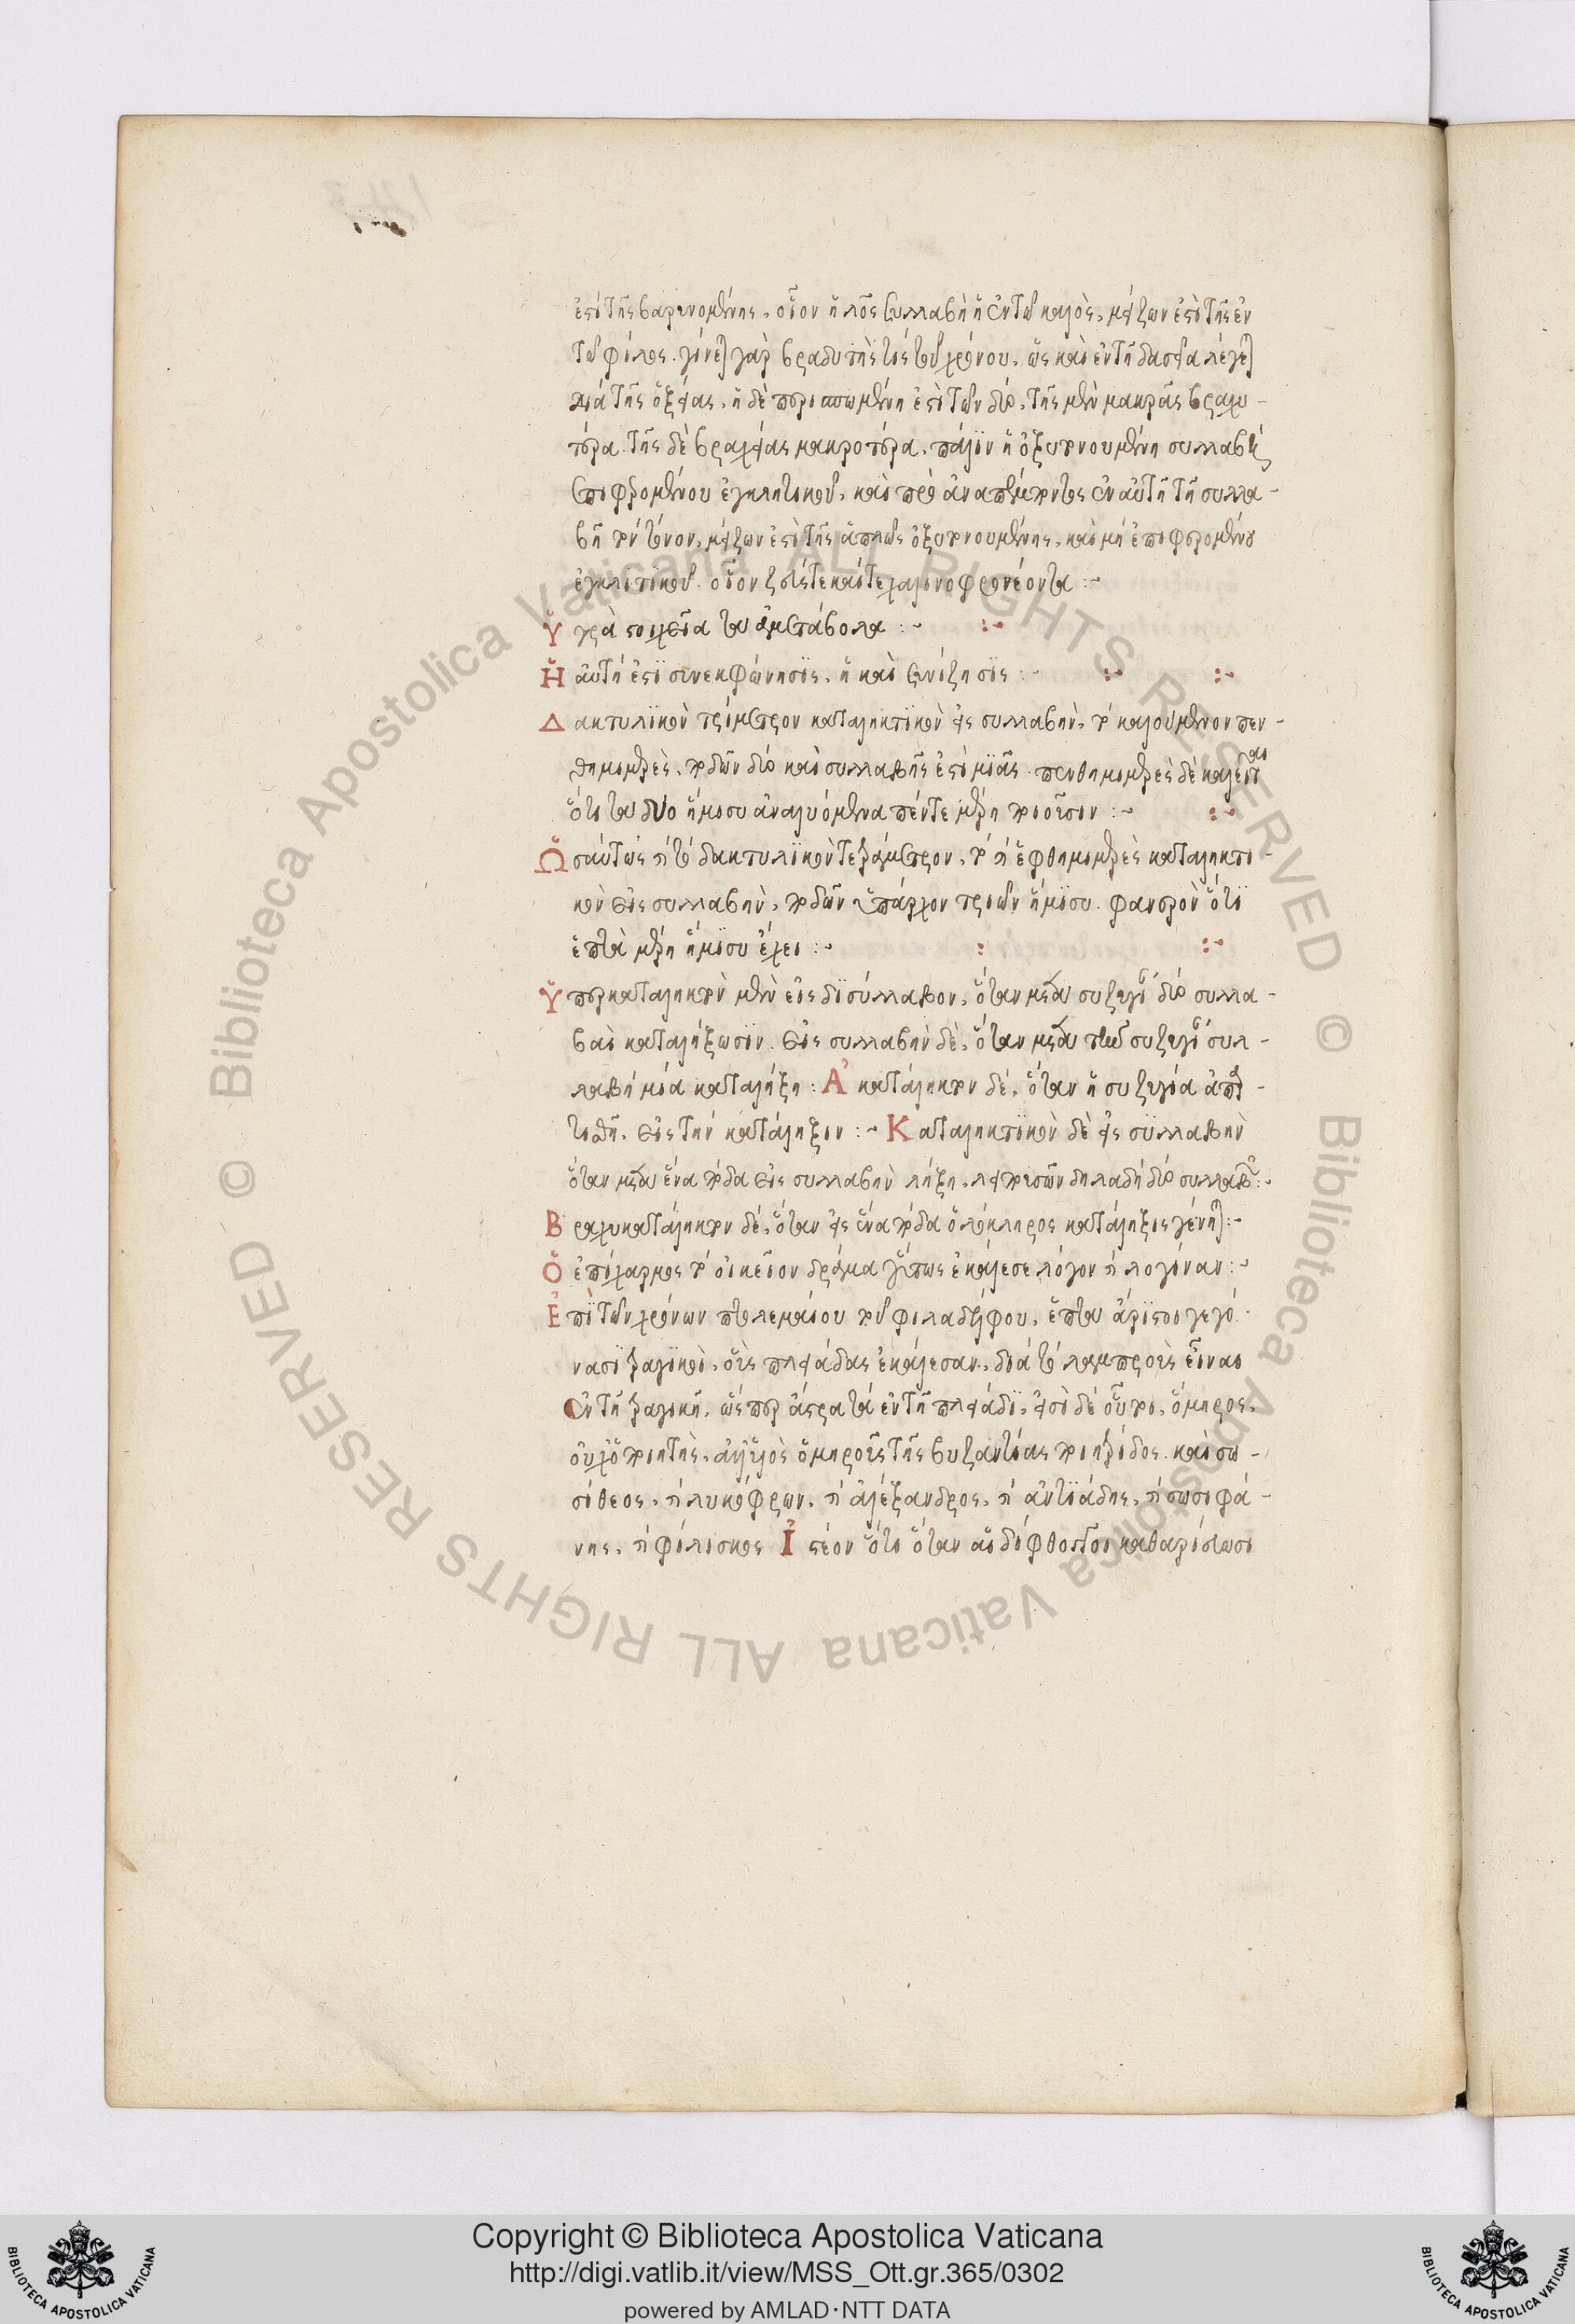 ἐστὶ τῆς βαρυνομένης, οἷον ἡ λος συλλαβὴ ἡ ἐν τῷ καλὸς, μείζων ἐστὶ τῆς ἐν
τῷ φίλος. γίνεται γὰρ βραδυτὴς τις τοῦ χρόνου, ὡς καὶ ἐν τῇ δασεῖα λέγεται
διὰ τῆς ὀξείας, ἡ δὲ περισπωμένη ἐστὶ τῶν δύο, τῆς μὲν μακρᾶς βραχυ-
τέρα. τῆς δὲ βραχείας μακροτέρα, πάλιν ἡ ὀξυτονουμένη συλλαβὴ
ἐπιφερομένου ἐγκλιτικοῦ, καὶ πρὸ ἀναπέμποντος ἐν αὐτῇ τῇ συλλα-
βῇ τὸν τόνον, μείζων ἐστὶ τῆς ἁπλῶς ὀξυτονουμένης, καὶ μὴ ἐπιφερομένου
ἐγκλιτικοῦ. οἷον
Ὑγρὰ στοιχεῖα τὰ ἀμετάβολα :~ :~
Ἡ αὐτή ἐστι συνεκφώνησις, ἡ καὶ συνίζησις :~ :~ :~
Δακτυλικὸν τρίμετρον καταληκτικὸν εἰς συλλαβὴν, τὸ καλούμενον πεν-
θημιμερὲς, ποδῶν δύο καὶ συλλαβῆς ἐστὶ μιᾶς. πενθημιμερὲς δὲ καλεῖται
ὅτι τὰ δύο ἥμισυ ἀναλυόμενα πέντε μέρη ποιοῦσιν :~ :~
Ὡσαύτως καὶ τὸ δακτυλικὸν τετράμετρον, τὸ καὶ ἑφθημιμερὲς καταληκτι-
κὸν εἰς συλλαβὴν, ποδῶν ὑπάρχον τριῶν ἥμισυ. φανερὸν ὅτι
ἑπτὰ μέρη ἥμισυ ἔχει :~ : :~
Ὑπερκατάληκτον μὲν εἰς δισύλλαβον, ὅταν μετὰ συζυγίαν δύο συλλα-
βαὶ καταλήξωσιν. εἰς συλλαβὴν δὲ, ὅταν μετὰ τὴν συζυγίαν συλ-
λαβὴ μία καταλήξη : Ἀκατάληκτον δέ, ὅταν ἡ συζυγία ἀπαρ-
τισθῇ, εἰς τὴν κατάληξιν :~ Καταληκτικὸν δὲ εἰς συλλαβὴν
ὅταν μετὰ ἕνα πόδα εἰς συλλαβὴν λήξη, λειπουσῶν δηλαδὴ δύο συλλαβῶν :~
Βραχυκατάληκτον δέ, ὅταν εἰς ἕνα πόδα ὁλόκληρος κατάληξις γένηται :~
Ὁ ἐπίχαρμος τὸ οἰκεῖον δρᾶμα οὕτως ἐκάλεσε λόγον καὶ λογίναν :~
Ἐπὶ τῶν χρόνων πτολεμαίου τοῦ φιλαδέλφου, ἑπτὰ ἄριστοι γεγό-
νασι τραγικοὶ, οὓς πλειάδας ἐκάλεσαν, διὰ τὸ λαμπροὺς εἶναι
ἐν τῇ τραγικῇ, ὥσπερ ἄστρα τὰ ἐν τῇ πλειάδι, εἰσὶ δὲ οὗτοι, ὅμηρος,
οὐχ ὁ ποιητὴς, ἀλλ' υἱὸς ὁ μηροῦς τῆς βυζαντίας ποιητρίδος. καὶ σω-
σίθεος, καὶ λυκόφρων, καὶ ἀλέξανδρος, καὶ ἀντιάδης, καὶ σωσιφά-
νης, καὶ φίλισκος Ἰστέον ὅτι ὅταν αἱ δίφθογγοι καθαρίσωσι
Copyright © Biblioteca Apostolica Vaticana
http://digi.vatlib.it/view/MSS_Ott.gr.365/0302
powered by AMLAD·NTT DATA